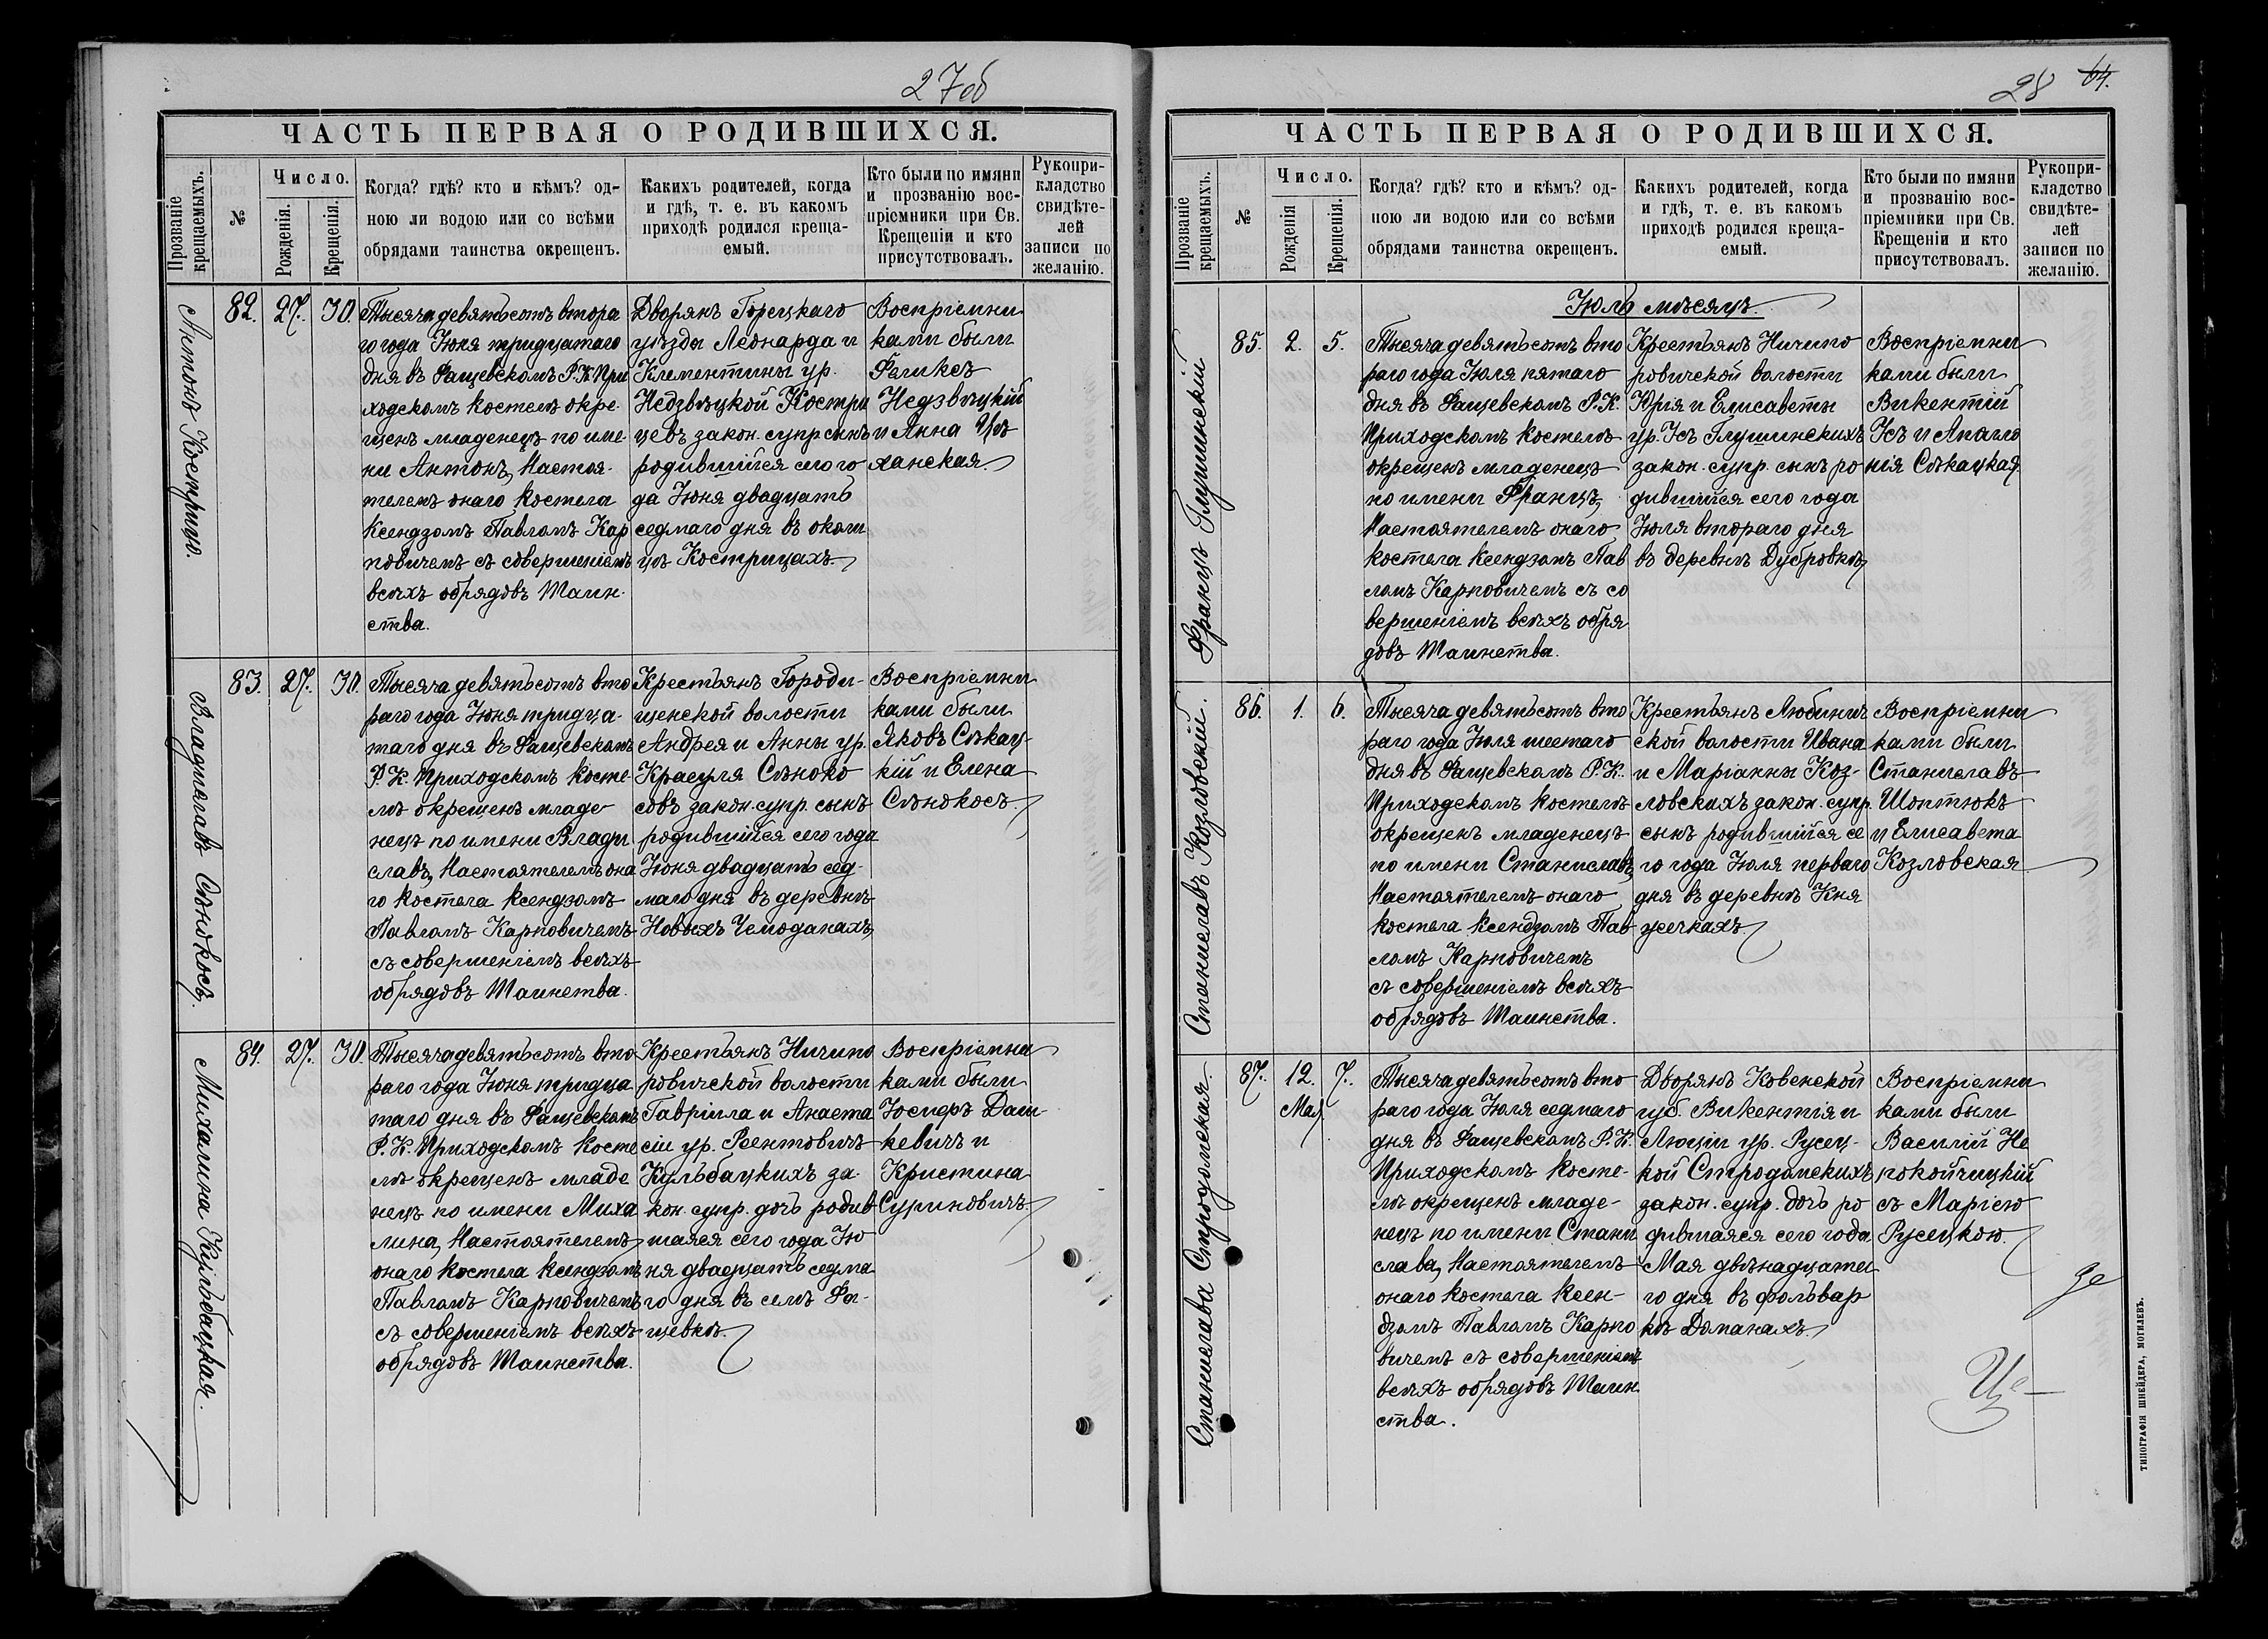 27об
ЧАСТЬ ПЕРВАЯ О РОДИВШИХСЯ.
Прозваніе крещаемыхъ.
№
Число.
Рожденія.
Крещенія.
Когда? гдѣ? кто и кѣмъ? од-
ною ли водою или со всѣми
обрядами таинства окрещенъ.
Какихъ родителей, когда
и гдѣ, т. е. въ какомъ
приходѣ родился креща-
емый.
Кто были по имяни
и прозванію вос-
пріемники при Св.
Крещеніи и кто
присутствовалъ.
Рукопри-
кладство
свидѣте-
лей
записи по
желанію.
Антонъ Кострица.
82.
27.
30.
Тысяча девятьсотъ втора
го года Іюня тридцатаго
дня въ Фащевскомъ Р. К. При
ходскомъ костелѣ окре-
щенъ младенецъ по име-
ни Антонъ, Настоя-
телемъ онаго костела
Ксендзомъ Павломъ Кар
повичемъ съ совершеніемъ
всѣхъ обрядовъ Таин-
ства.
Дворянъ Горецкаго
уѣзда Леонарда и
Клементины ур.
Недзвѣцкой Костри
цевъ закон. супр. сынъ
родившійся сего го
да Іюня двадцать
седмаго дня въ околи
цѣ Кострицахъ.
Воспріемни
ками были
Феликсъ
Недзвѣцкій
и Анна Цѣ
ханская.
Владиславъ Сѣнокосъ.
83.
27.
30.
Тысяча девятьсотъ вто
раго года Іюня тридца-
таго дня въ Фащевскомъ
Р. К. Приходскомъ косте-
лѣ окрещенъ младе-
нецъ по имени Влади
славъ, Настоятелемъ она
го костела Ксендзомъ
Павломъ Карповичемъ
съ совершеніемъ всѣхъ
обрядовъ Таинства.
Крестьянъ Городи-
щенской волости
Андрея и Анны ур.
Красуля Сѣноко
совъ закон. супр. сынъ
родившійся сего года
Іюня двадцать сед-
маго дня въ деревнѣ
Новыхъ Чемоданахъ,
Воспріемни
ками были
Яковъ Сѣкац-
кій и Елена
Сѣнокосъ.
Михалина Кульбацкая.
84.
27.
30.
Тысяча девятьсотъ вто
раго года Іюня тридца
таго дня въ Фащевскомъ
Р. К. Приходскомъ косте
лѣ окрещенъ младе
нецъ по имени Миха
лина, Настоятелемъ
онаго костела Ксендзомъ
Павломъ Карповичемъ
съ совершеніемъ всѣхъ
обрядовъ Таинства.
Крестьянъ Ничипо
ровичской волости
Гавріила и Анаста
сіи ур. Рентовичъ
Кульбацкихъ за-
кон. супр. дочь родив
шаяся сего года Ію
ня двадцать седма
го дня въ селѣ Фа-
щевкѣ.
Воспріемни
ками были
Іосифъ Даш-
кевичъ и
Кристина
Суриновичъ.
28 64.
ЧАСТЬ ПЕРВАЯ О РОДИВШИХСЯ.
Прозваніе крещаемыхъ.
№
Число.
Рожденія
Крещенія.
Когда? гдѣ? кто и кѣмъ? од-
ною ли водою или со всѣми
обрядами таинства окрещенъ.
Какихъ родителей, когда
и гдѣ, т. е. въ какомъ
приходѣ родился креща-
емый.
Кто были по имяни
и прозванію вос-
пріемники при Св.
Крещеніи и кто
присутствовалъ.
Рукопри-
кладство
свидѣте-
лей
записи по
желанію.
Іюль мѣсяцъ.
Францъ Глушинскій
85.
2.
5.
Тысяча девятьсотъ вто
раго года Іюля пятаго
дня въ Фащевскомъ Р. К.
Приходскомъ костелѣ
окрещенъ младенецъ
по имени Францъ,
Настоятелемъ онаго
костела Ксендзомъ Пав
ломъ Карповичемъ съ со
вершеніемъ всѣхъ обря
довъ Таинства.
Крестьянъ Ничипо
ровичской волости
Юрія и Елисаветы
ур. Усъ Глушинскихъ
закон. супр. сынъ ро
дившійся сего года
Іюля втораго дня
въ деревнѣ Дубровкѣ,
Воспріемни
ками были
Викентій
Усъ и Аполло
нія Сѣкацкая.
Станиславъ Козловскій.
86.
1.
6.
Тысяча девятьсотъ вто
раго года Іюля шестаго
дня въ Фащевскомъ Р. К.
Приходскомъ костелѣ
окрещенъ младенецъ
по имени Станиславъ,
Настоятелемъ онаго
костела Ксендзомъ Пав
ломъ Карповичемъ
съ совершеніемъ всѣхъ
обрядовъ Таинства.
Крестьянъ Любинич
ской волости Ивана
и Маріанны Коз-
ловскихъ закон. супр.
сынъ родившійся се
го года Іюля перваго
дня въ деревнѣ Кня
жечкахъ.
Воспріемни
ками были
Станиславъ
Шоптюкъ
и Елисавета
Козловская
Станислава Стродомская.
87.
12.
Мая
7.
Тысяча девятьсотъ вто
раго года Іюля седмаго
дня въ Фащевскомъ Р. К.
Приходскомъ косте-
лѣ окрещенъ младе-
нецъ по имени Стани
слава, Настоятелемъ
онаго костела Ксен-
дзомъ Павломъ Карпо
вичемъ съ совершеніемъ
всѣхъ обрядовъ Таин
ства.
Дворянъ Ковенской
губ. Викентія и
Люціи ур. Русец-
кой Стродомскихъ
закон. супр. дочь ро
дившаяся сего года
Мая двѣнадцата
го дня въ фольвар
кѣ Доманахъ.
Воспріемни
ками были
Василій Не
покойчицкій
съ Маріею
Русецкою.
ТИПОГРАФІЯ ШНЕЙДЕРА, МОГИЛЕВЪ.